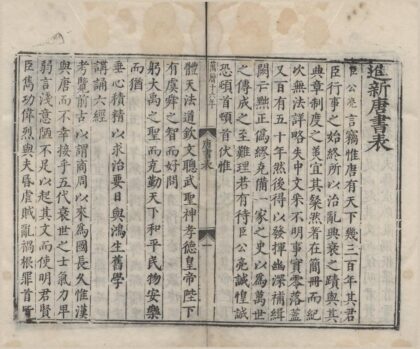 進新唐書表
臣公亮言竊惟唐有天下幾三百年其君
臣行事之始終所以治亂興衰之蹟與其
典章制度之英宜其粲然著在簡冊而紀
次無法詳略失中文采不明事實零落蓋
又百有五十年然後得以發揮幽沬補緝
闕亡黜正偽繆克備一家之史以為萬世
之傳成之至難理若有待臣公亮誠惶誠
恐頓首頓首伏惟
萬曆十六年
唐書表
一
體天法道欽文聰武聖神孝德皇帝陛下
有虞舜之智而好問
躬大禹之聖而克勤天下和平民物安樂
而猶
垂心積精以求治要日與鴻生舊學
講誦六經
考覽前古以謂商周以來為國長久惟漢
與唐而不幸接乎五代衰世之士氣力卑
弱言淺意陋不足以起其文而使明君賢
臣雋功偉烈與夫昏虐賊亂禍根罪首皆